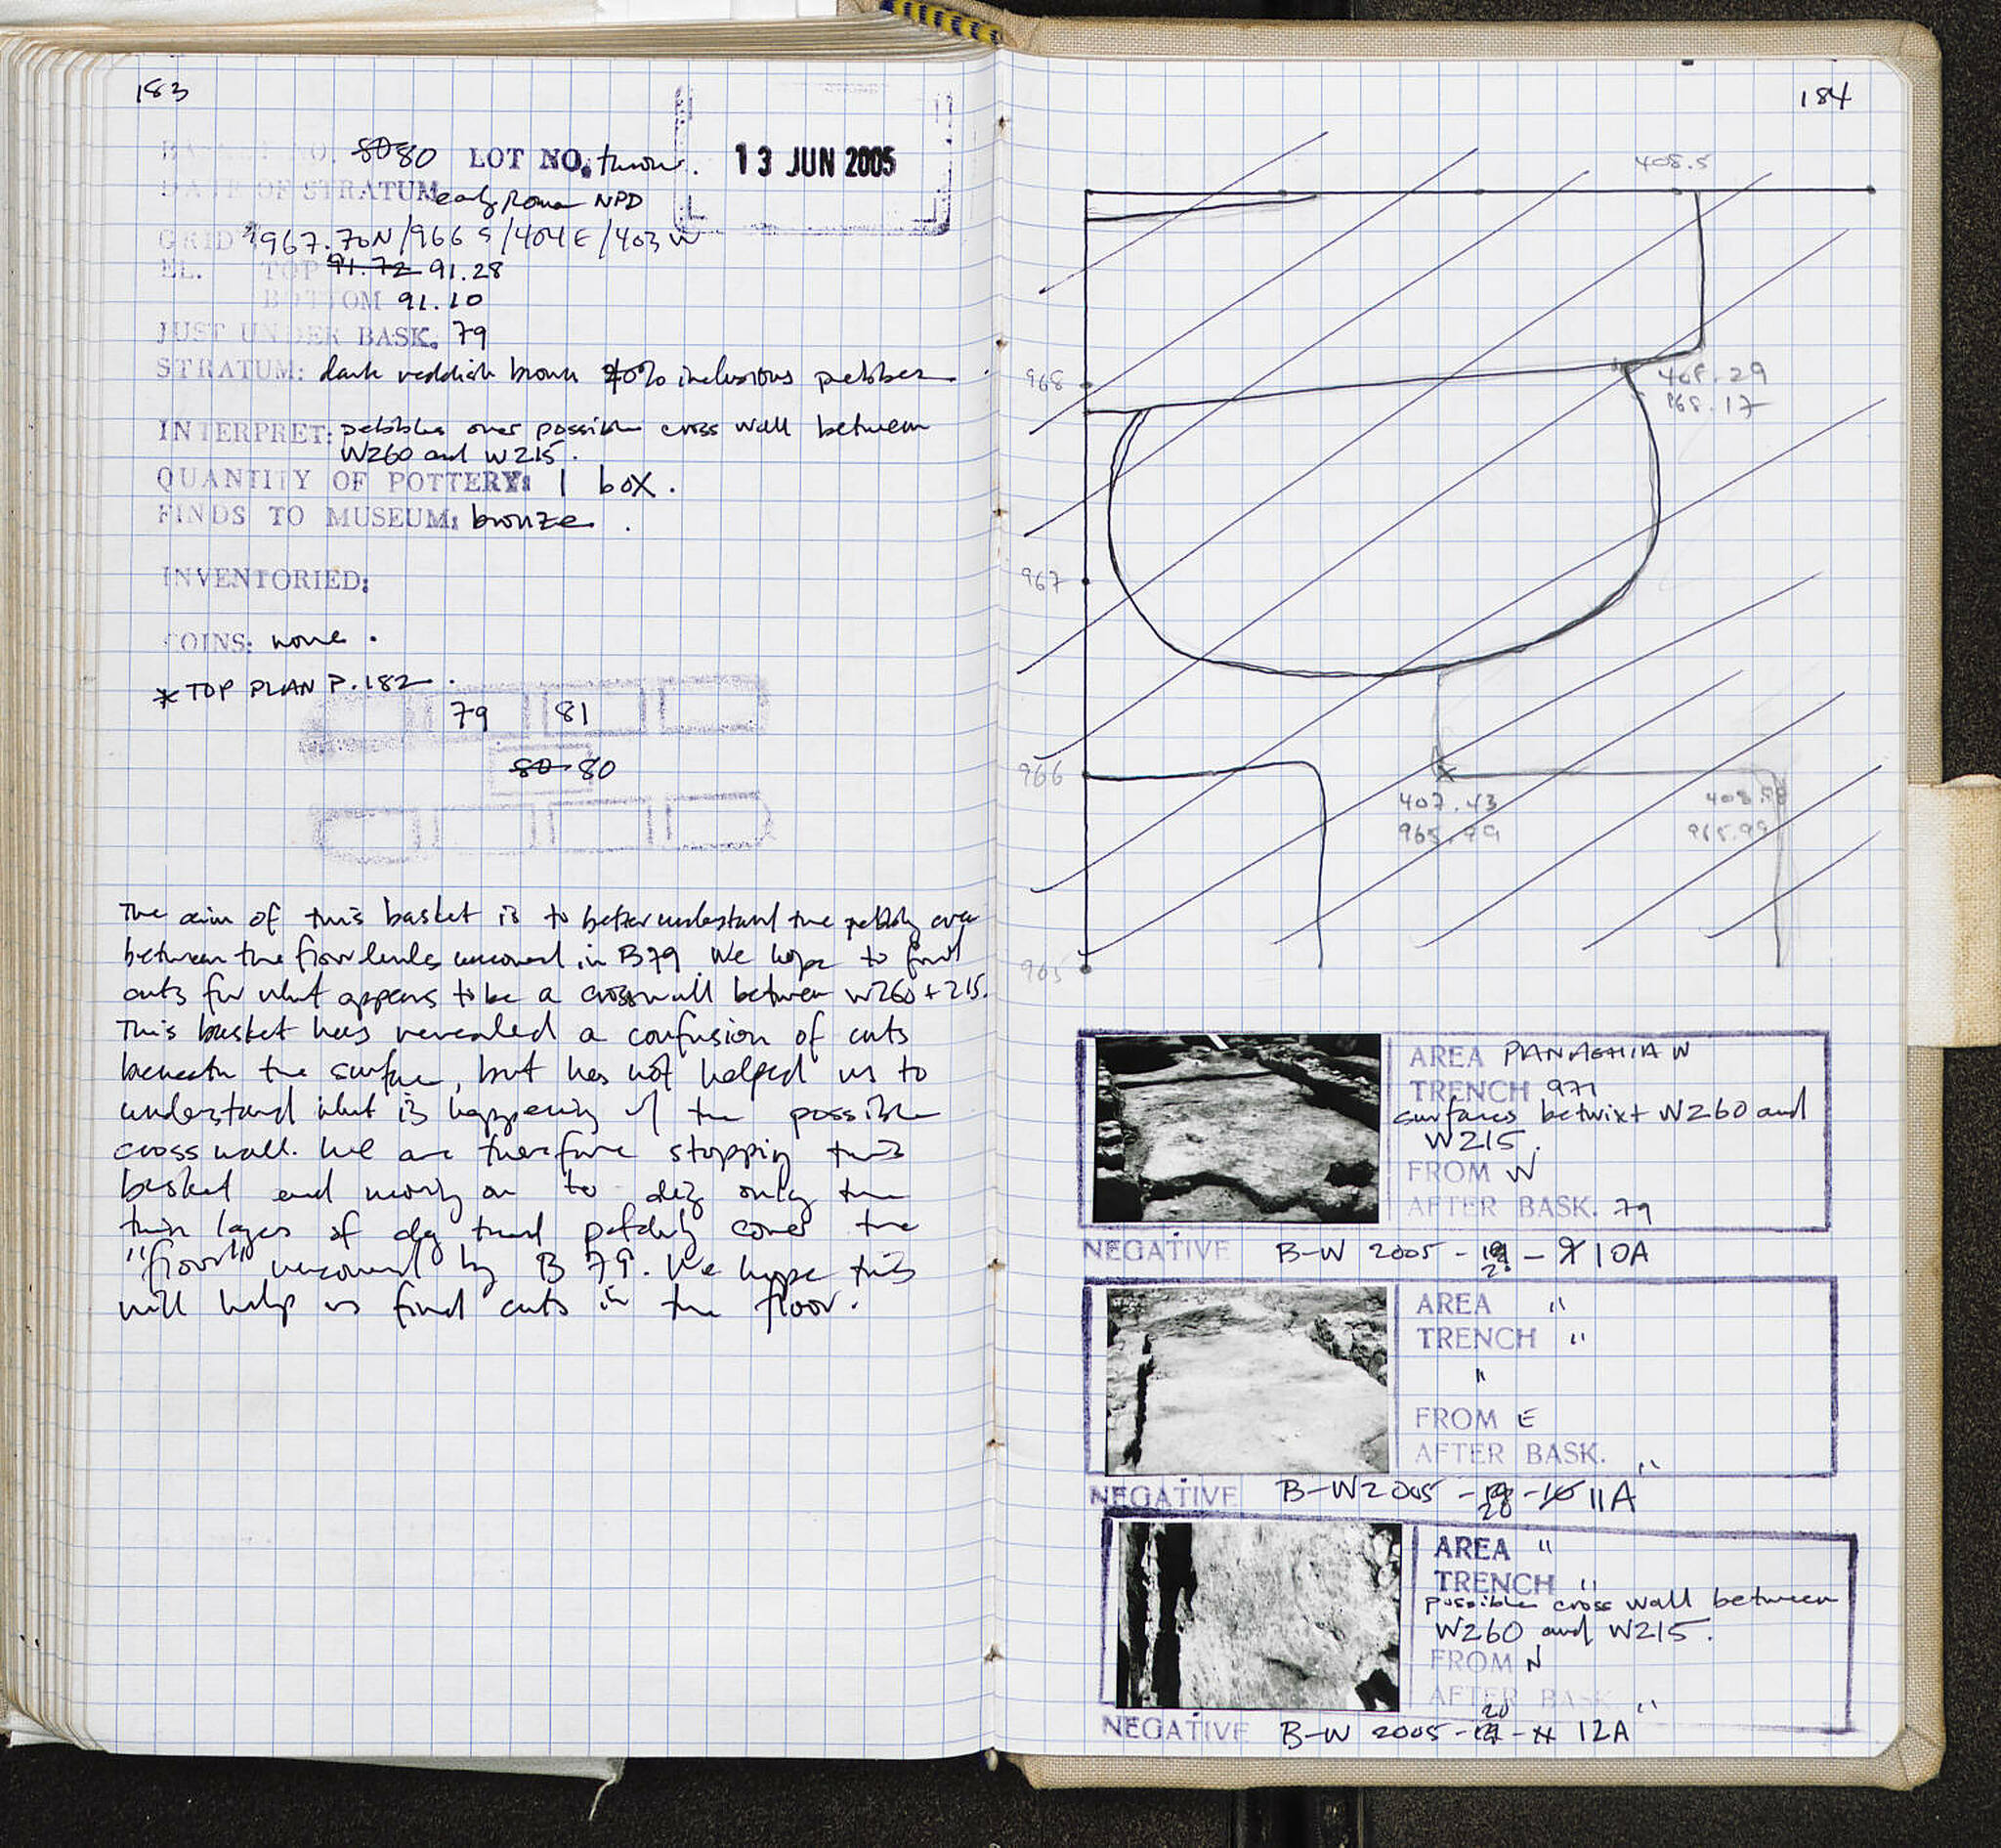 183
BASKET NO. 80 80 LOT NO. throw.
13 JUN 2005
DATE OF STRATUM early Roman NPD
GRID 967.70N/966 S/404E/403 W
EL. TOP 91.72 91.28
BOTTOM 91.10
JUST UNDER BASK. 79
STRATUM: dark reddish brown 20% inclusions pebbles
INTERPRET: pebbles over possible cross wall between
W260 and W215.
QUANTITY OF POTTERY: 1 box.
FINDS TO MUSEUM: bronze.
INVENTORIED:
COINS: none.
* TOP PLAN P. 182.
79 81
80 80
The aim of this basket is to better understand the pebbly area
between the floor levels uncovered in B79. We hope to find
cuts for what appears to be a crosswall between W260 + 215.
This basket has revealed a confusion of cuts
beneath the surface, but has not helped us to
understand what is happening w/ the possible
cross wall. We are therefore stopping this
basket and moving on to dig only the
thin layer of clay that patchily cover the
"floor" uncovered by B 79. We hope this
will help us find cuts in the floor.
184
408.5
968
408.29
968.17
967
966
407.43
965.99
408.58
965.99
965
AREA PANAGHIA W
TRENCH 971
surfaces betwixt W260 and
W215.
FROM W
AFTER BASK. 79
NEGATIVE B-W 2005 - 19 20 - 9 10A
AREA "
TRENCH "
"
FROM E
AFTER BASK. "
NEGATIVE B-W 2005 - 19 20 - 10 11A
AREA "
TRENCH "
possible cross wall between
W260 and W215.
FROM N
AFTER BASK "
NEGATIVE B-W 2005 - 19 20 - 11 12A